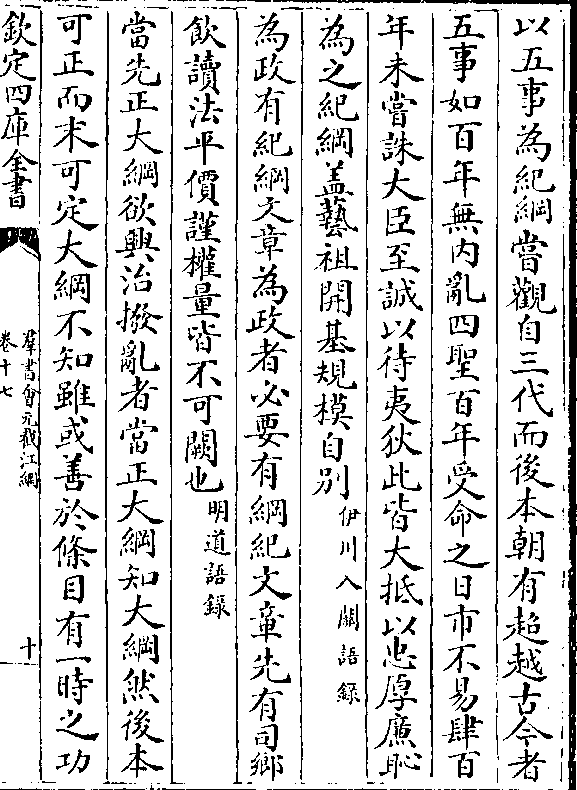 以五事為紀綱嘗觀自三代而後本朝有超越古今者
五事如百年無内亂四聖百年受命之日市不易肆百
年未嘗誅大臣至誠以待夷狄此皆大抵以忠厚廉恥
為之紀綱蓋藝祖開基規模自别伊川入關語録
為政有紀綱文章為政者必要有綱紀文章先有司鄉
飲讀法平價謹權量皆不可闕也明道語録
當先正大綱欲興治撥亂者當正大綱知大綱然後本
可正而末可定大綱不知雖或善於條目有一時之功
欽定四庫全書
羣書會元截江網
卷十七
十